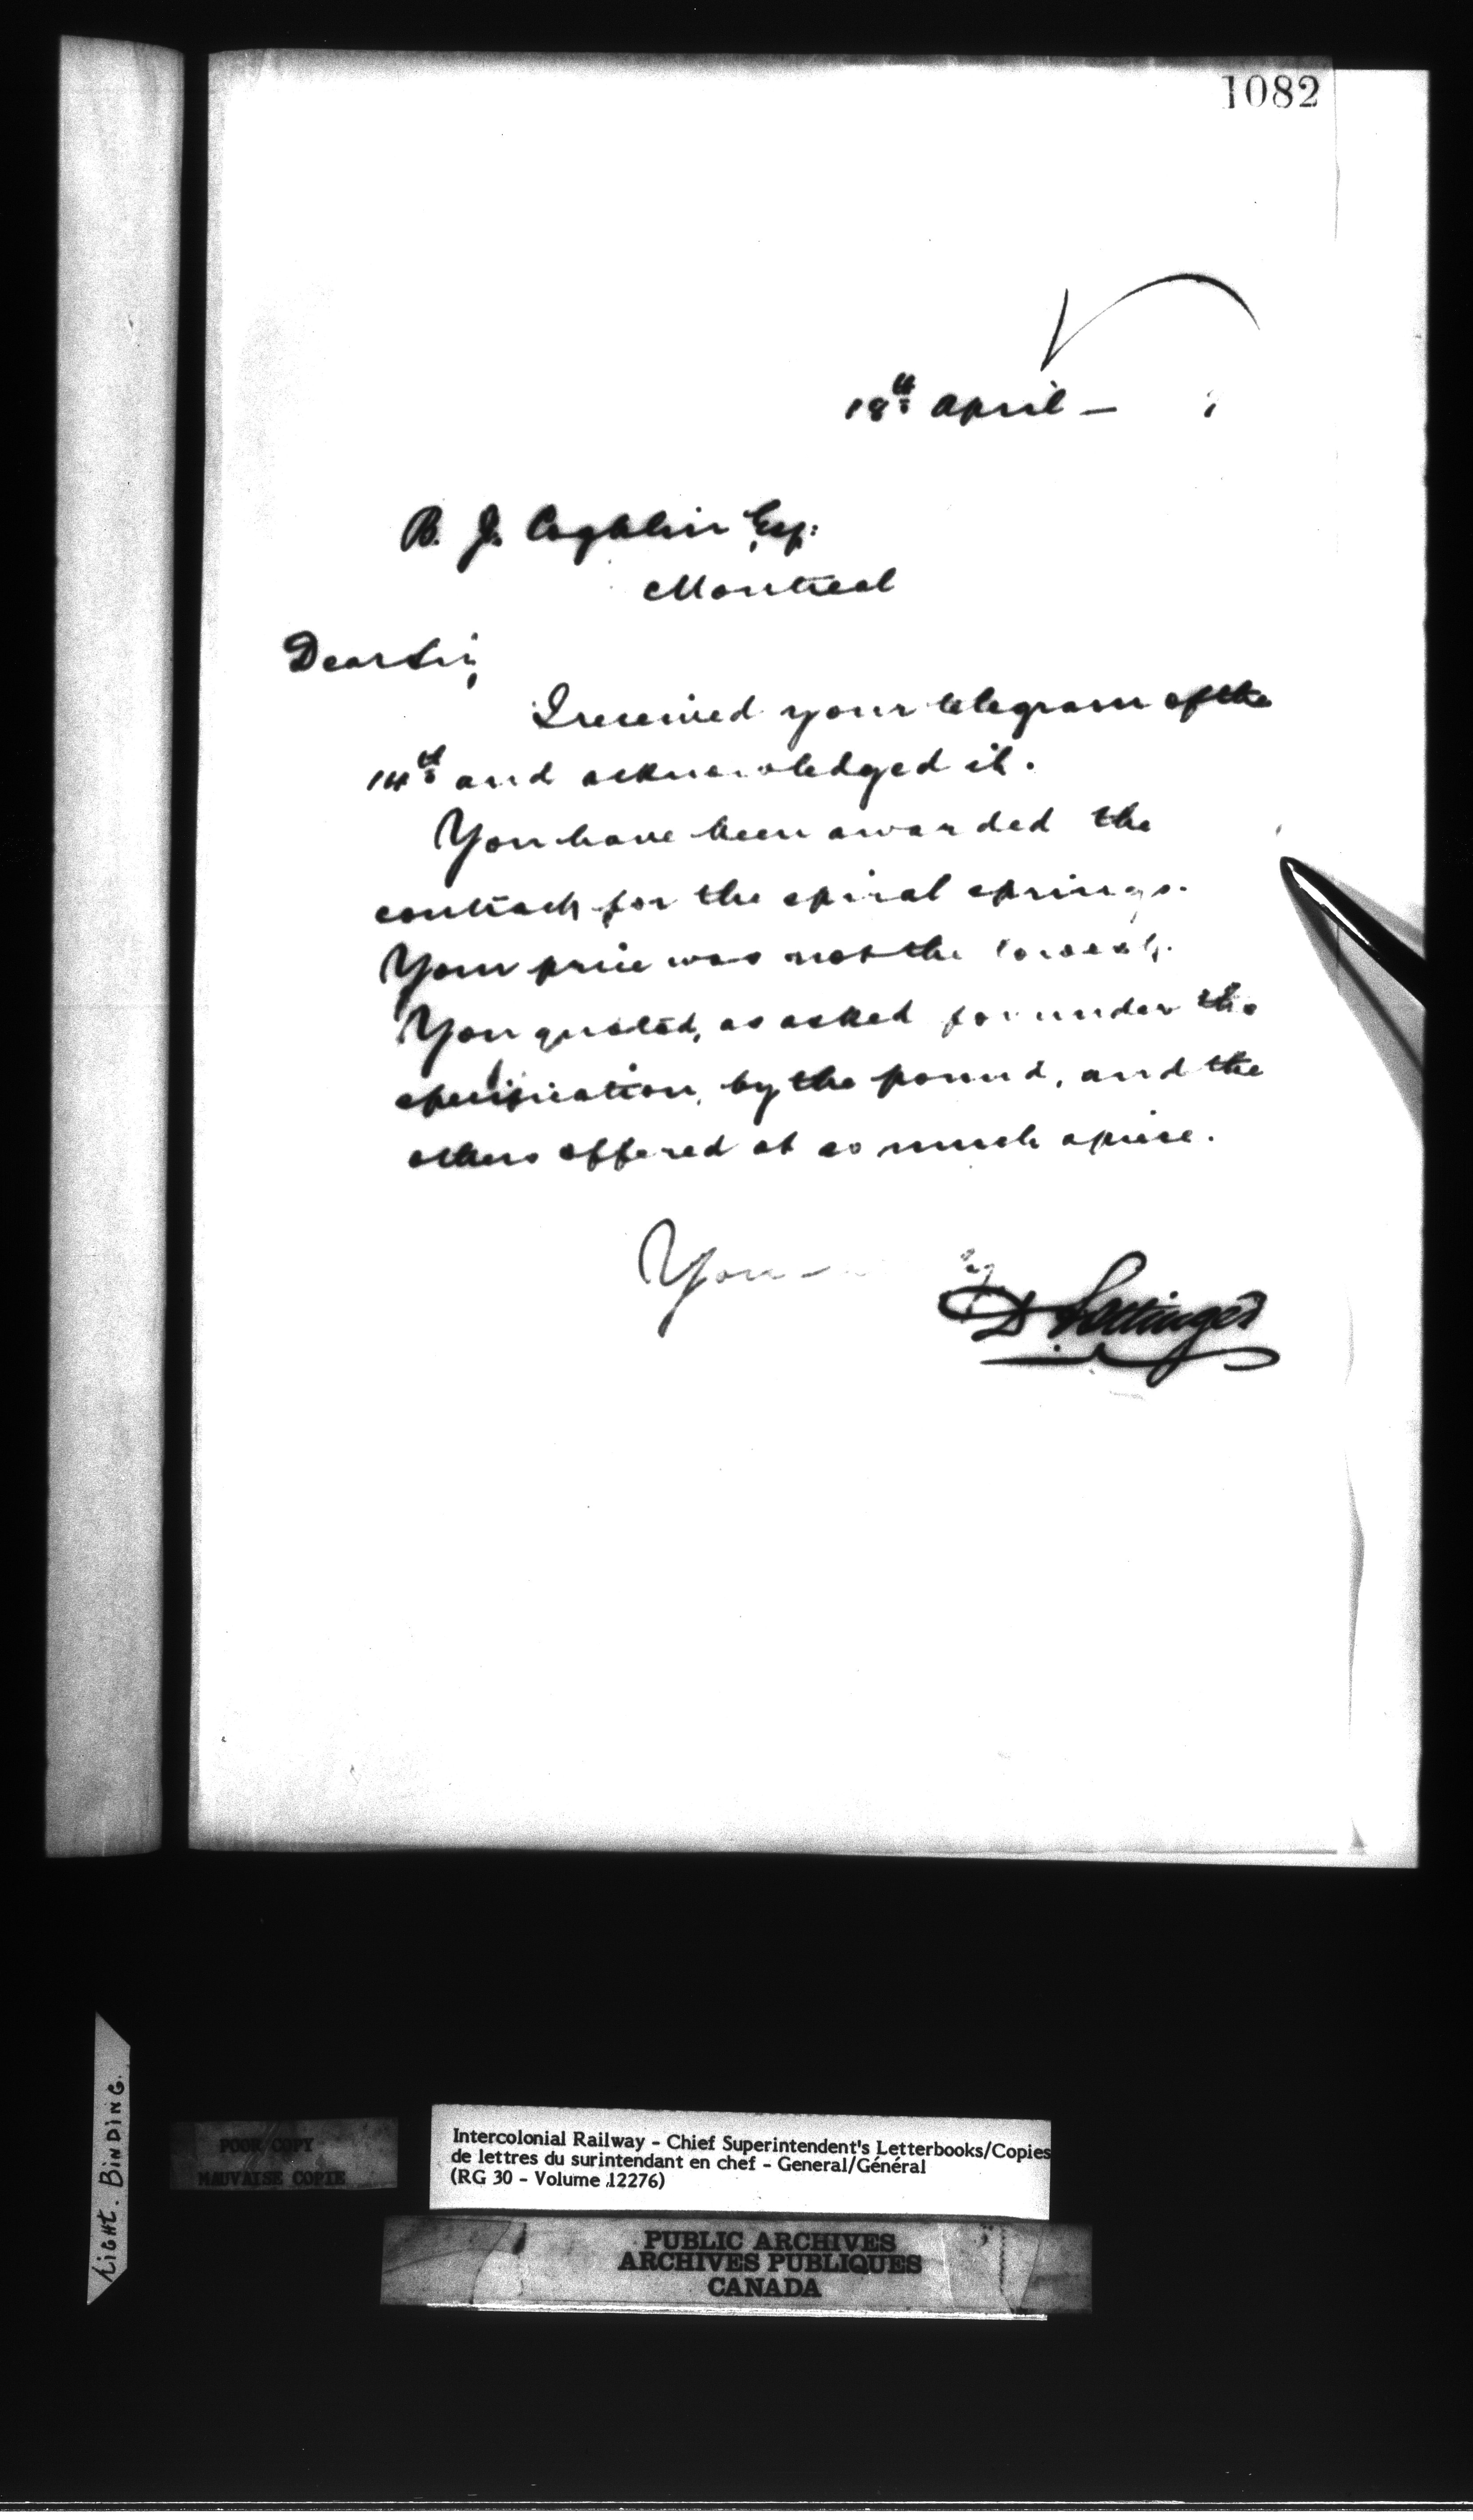 1082
18th April —
B. J. Coghlin Esq:
Montreal
Dear Sir,
I received your telegram of the
14th and acknowledged it.
You have been awarded the
contract for the spiral springs.
Your price was not the lowest.
You quoted, as asked for under the
specification, by the pound, and the
others offered at so much apiece.
D Pottinger
LIGHT. BINDING.
POOR COPY
MAUVAISE COPIE
Intercolonial Railway - Chief Superintendent's Letterbooks/Copies
de lettres du surintendant en chef - General/Général
(RG 30 - Volume 12276)
PUBLIC ARCHIVES
ARCHIVES PUBLIQUES
CANADA